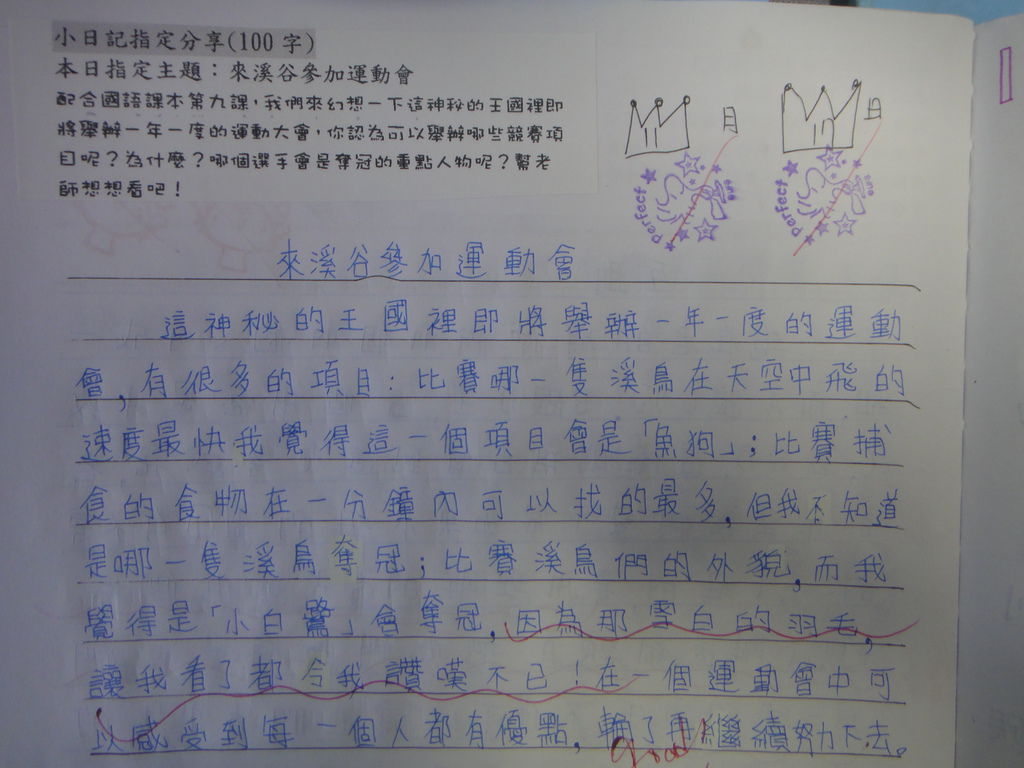 小日記指定分享(100字)
本日指定主題：來溪谷參加運動會
配合國語課本第九課，我們來幻想一下這神秘的王國裡即
將舉辦一年一度的運動大會，你認為可以舉辦哪些競賽項
目呢？為什麼？哪個選手會是奪冠的重點人物呢？幫老
師想想看吧！
月
日
perfect
one
perfect
one
來溪谷參加運動會
這神秘的王國裡即將舉辦一年一度的運動
會，有很多的項目：比賽哪一隻溪鳥在天空中飛的
速度最快我覺得這一個項目會是「魚狗」；比賽捕
食的食物在一分鐘內可以找的最多，但我不知道
是哪一隻溪鳥奪冠；比賽溪鳥們的外貌，而我
覺得是「小白鷺」會奪冠，因為那雪白的羽毛，
讓我看了都令我讚嘆不已！在一個運動會中可
以感受到每一個人都有優點，輸了再繼續努力下去。
Good!